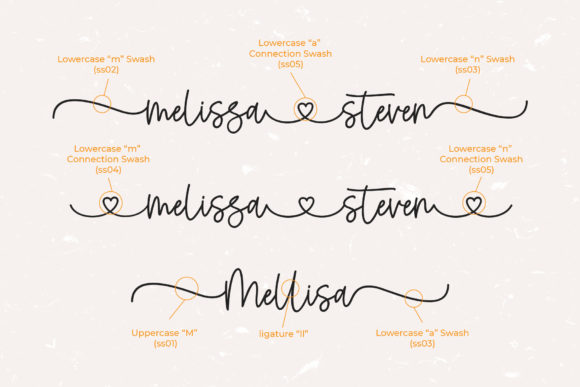 Lowercase “a”
Connection Swash
(ss05)
Lowercase “m” Swash
(ss02)
Lowercase “n” Swash
(ss03)
melissa steven
Lowercase “m”
Connection Swash
(ss04)
Lowercase “n”
Connection Swash
(ss05)
melissa steven
Mellisa
Uppercase “M”
(ss01)
ligature “ll”
Lowercase “a” Swash
(ss03)